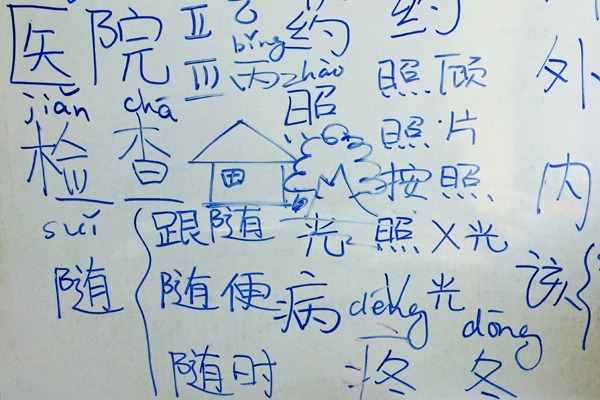 医院 II 乙 约 约
bǐng
III 丙 zhào 照顾 外
jiǎn chá 照
照片
检查 按照 内
suí 跟随 光 照X光
随 随便 病 光 该
dōng
随时 疼 冬